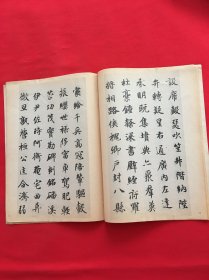 設席鼓瑟吹笙升階納陛
弁轉疑星右通廣內左達
承明既集墳典亦聚群英
杜稾鍾隸漆書壁經府羅
將相路俠槐卿戶封八縣
家給千兵高冠陪輦驅轂
振纓世祿侈富車駕肥輕
策功茂實勒碑刻銘磻溪
伊尹佐時阿衡奄宅曲阜
微旦孰營桓公匡合濟弱